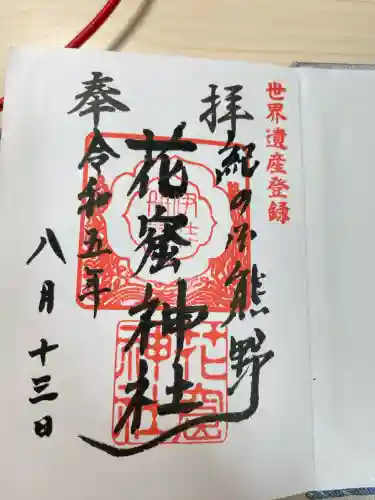 世界遺産登録
奉拝
紀の国熊野
花窟神社
令和五年
八月十三日
花窟神社